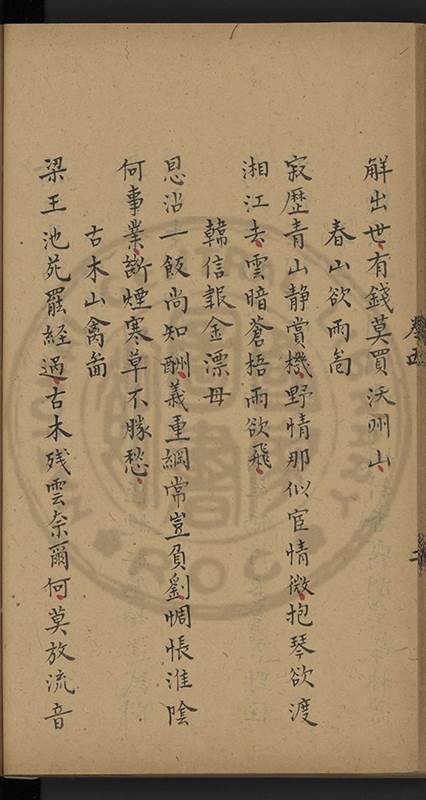 解出世有錢莫買沃州山
春山欲雨啚
寂歷青山静賞機野情那似宦情微抱琴欲渡
湘江去雲暗蒼梧雨欲飛
韓信報金漂母
恩沾一飯尚知酬義重綱常豈負劉惆悵淮陰
何事業斷煙寒草不勝愁
古木山禽啚
梁王池苑罷經過古木残雲奈爾何莫放流音